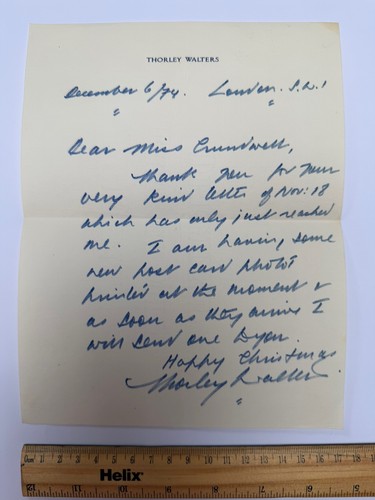 THORLEY WALTERS
December 6/74. London. S.W.1
Dear Miss Crundwell,
Thank you for your
very kind letter of Nov: 18
which has only just reached
me. I am having some
new post card photos
printed at the moment &
as soon as they arrive I
will send one to you.
Happy Christmas
Thorley Walters.
Helix